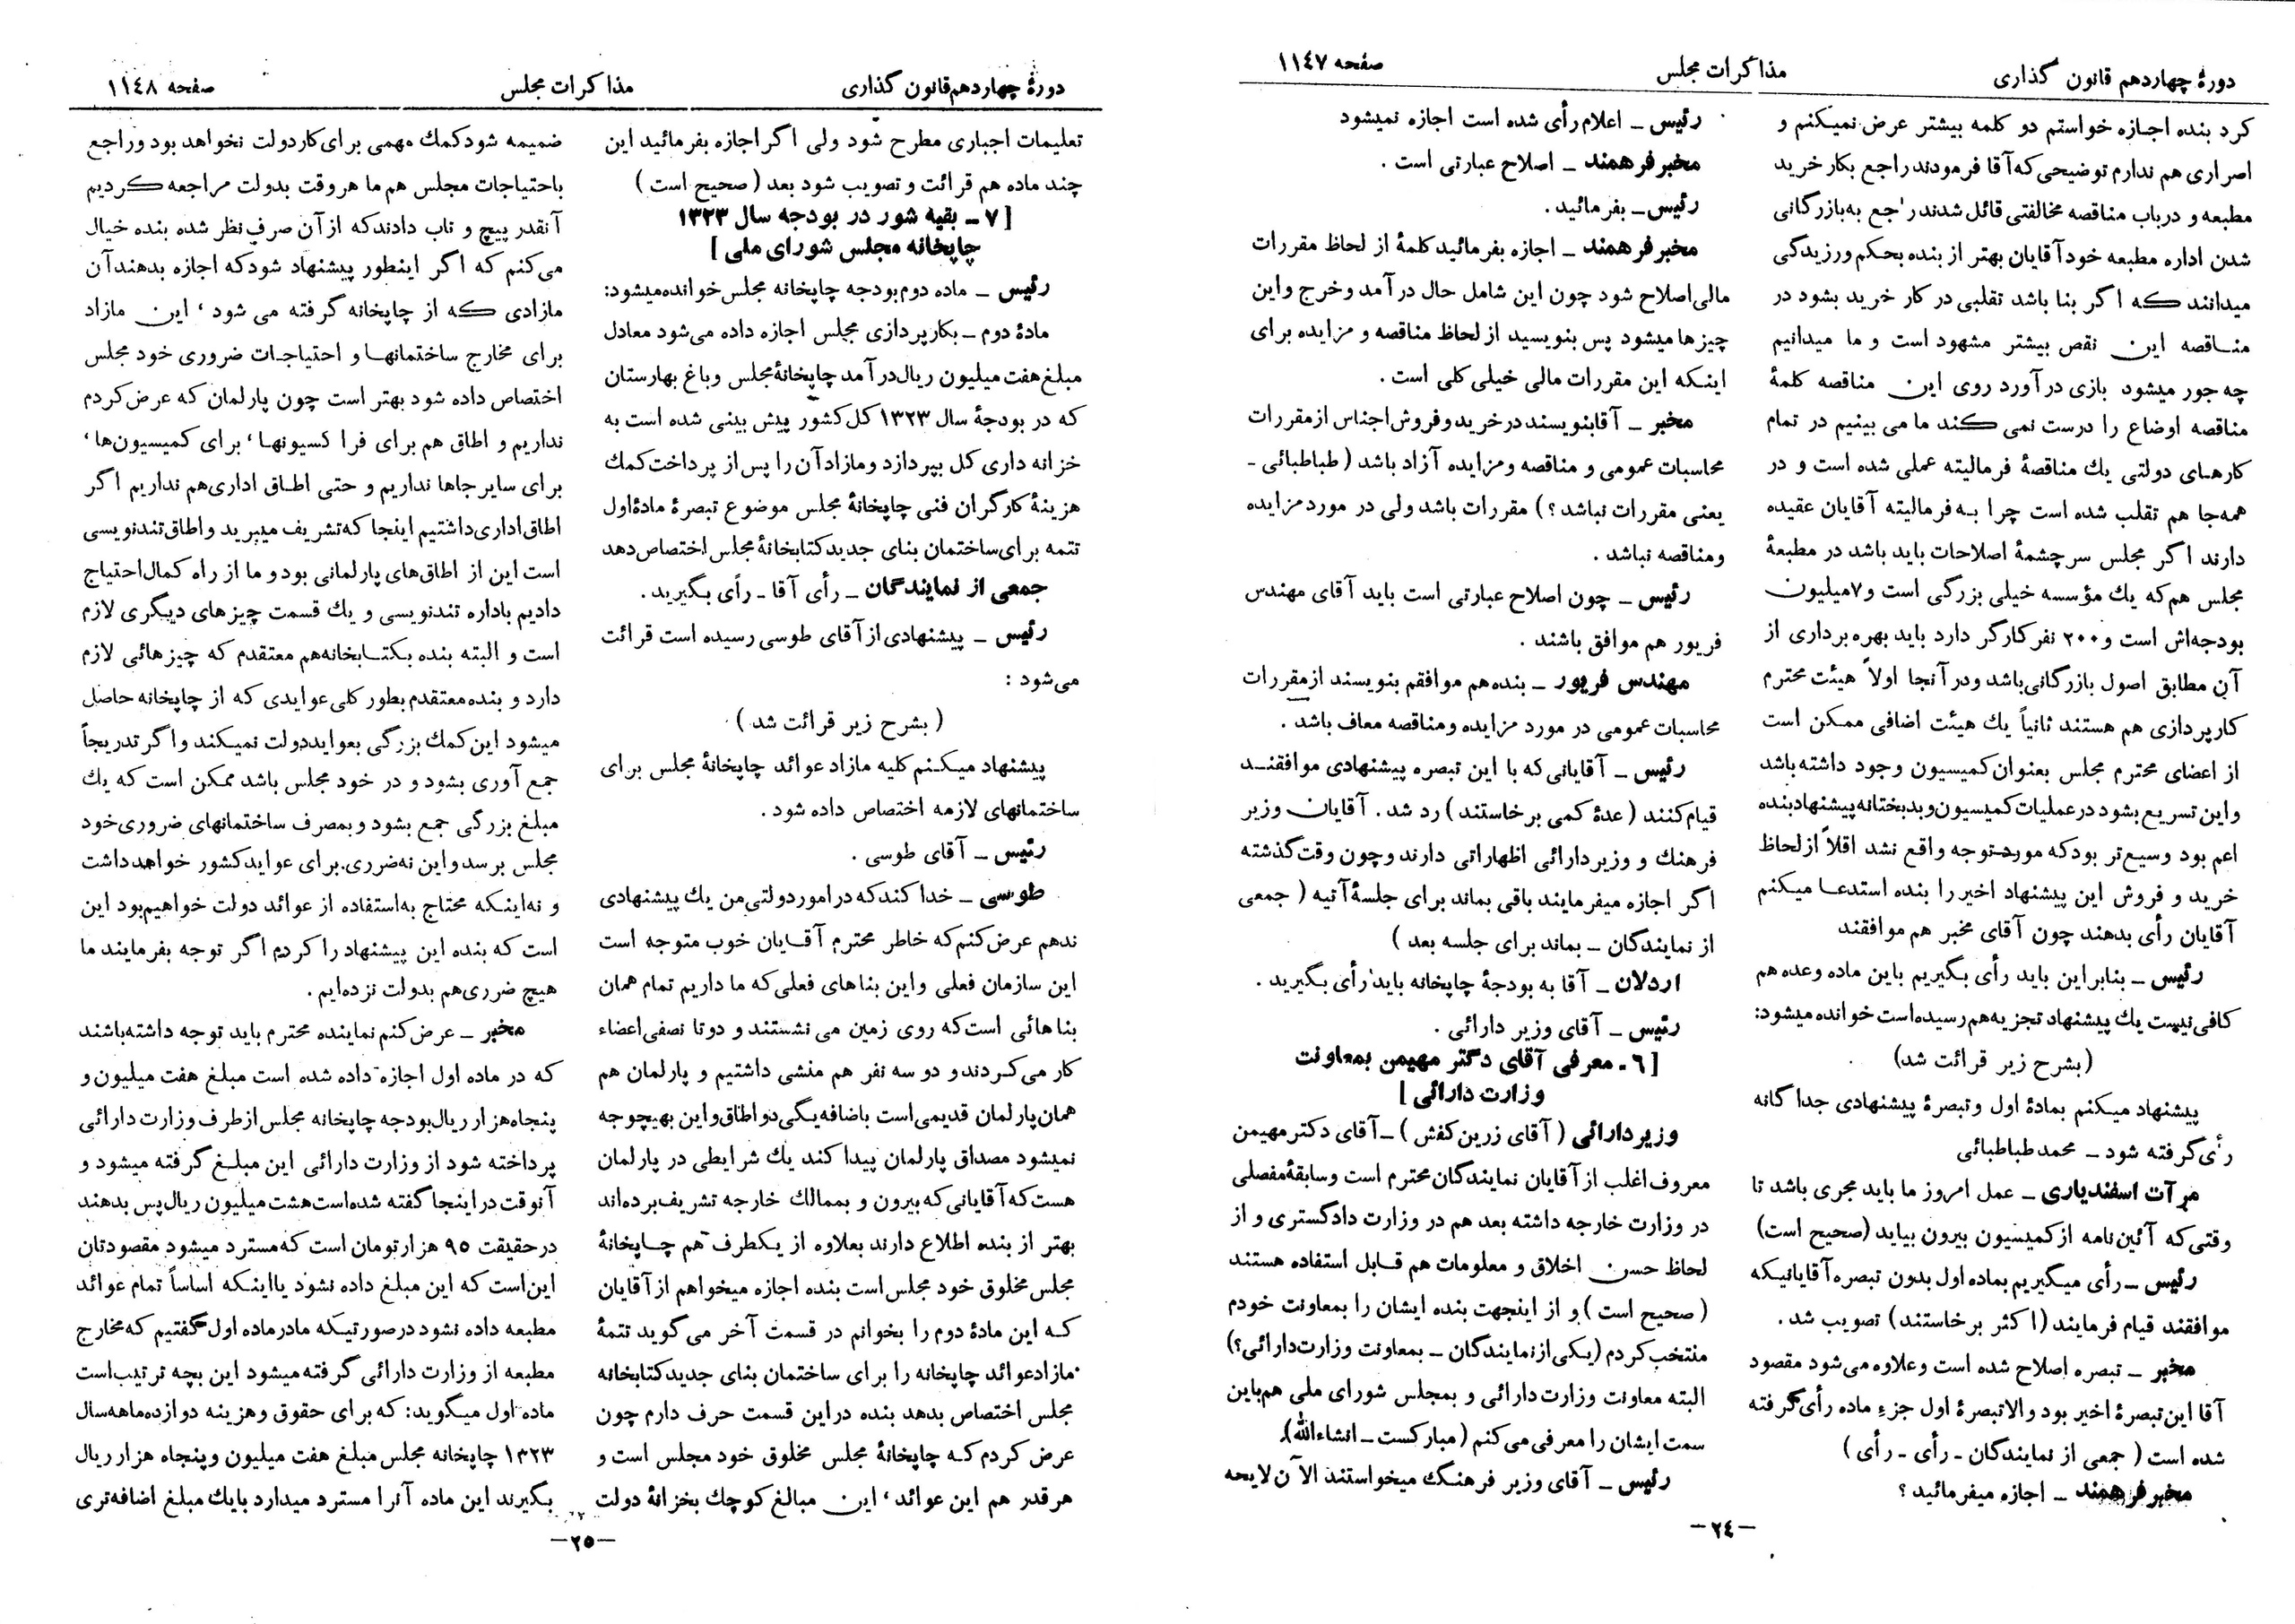 دورهٔ چهاردهم قانون گذاری
مذاکرات مجلس
صفحه ١١٤٧
کرد بنده اجازه خواستم دو کلمه بیشتر عرض نمیکنم و
اصراری هم ندارم توضیحی که آقا فرمودند راجع بکار خرید
مطبعه و در باب مناقصه مخالفتی قائل شدند راجع به بازرگانی
شدن اداره مطبعه خود آقایان بهتر از بنده بحکم ورزیدگی
میدانند که اگر بنا باشد تقلبی در کار خرید بشود در
مناقصه این نقص بیشتر مشهود است و ما میدانیم
چه جور میشود بازی درآورد روی این مناقصه کلمهٔ
مناقصه اوضاع را درست نمی کند ما می بینیم در تمام
کارهای دولتی یك مناقصهٔ فرمالیته عملی شده است و در
همه‌جا هم تقلب شده است چرا به فرمالیته آقایان عقیده
دارند اگر مجلس سرچشمهٔ اصلاحات باید باشد در مطبعهٔ
مجلس هم که یك مؤسسه خیلی بزرگی است و ٧ میلیون
بودجه‌اش است و ٢٠٠ نفر کارگر دارد باید بهره برداری از
آن مطابق اصول بازرگانی باشد و در آنجا اولاً هیئت محترم
کارپردازی هم هستند ثانیاً یك هیئت اضافی ممکن است
از اعضای محترم مجلس بعنوان کمیسیون وجود داشته باشد
و این تسریع بشود در عملیات کمیسیون و بدبختانه پیشنهاد بنده
اعم بود وسیع‌تر بود که مورد توجه واقع نشد اقلاً از لحاظ
خرید و فروش این پیشنهاد اخیر را بنده استدعا میکنم
آقایان رأی بدهند چون آقای مخبر هم موافقند
رئیس ــ بنابراین باید رأی بگیریم باین ماده وعده هم
کافی نیست یك پیشنهاد تجزیه هم رسیده است خوانده میشود:
(بشرح زیر قرائت شد)
پیشنهاد میکنم بمادهٔ اول و تبصرهٔ پیشنهادی جداگانه
رأی گرفته شود ــ محمد طباطبائی
مرآت اسفندیاری ــ عمل امروز ما باید مجری باشد تا
وقتی که آئین نامه از کمیسیون بیرون بیاید (صحیح است)
رئیس ــ رأی میگیریم بماده اول بدون تبصره آقایانیکه
موافقند قیام فرمایند (اکثر برخاستند) تصویب شد .
مخبر ــ تبصره اصلاح شده است و علاوه می شود مقصود
آقا این تبصرهٔ اخیر بود والا تبصرهٔ اول جزء ماده رأی گرفته
شده است ( جمعی از نمایندگان ـ رأی ـ رأی )
مخبر فرهمند ــ اجازه میفرمائید ؟
رئیس ــ اعلام رأی شده است اجازه نمیشود
مخبر فرهمند ــ اصلاح عبارتی است .
رئیس ــ بفرمائید .
مخبر فرهمند ــ اجازه بفرمائید کلمهٔ از لحاظ مقررات
مالی اصلاح شود چون این شامل حال درآمد و خرج و این
چیزها میشود پس بنویسید از لحاظ مناقصه و مزایده برای
اینکه این مقررات مالی خیلی کلی است .
مخبر ــ آقا بنویسند در خرید و فروش اجناس از مقررات
محاسبات عمومی و مناقصه و مزایده آزاد باشد ( طباطبائی ـ
یعنی مقررات نباشد ؟ ) مقررات باشد ولی در مورد مزایده
و مناقصه نباشد .
رئیس ــ چون اصلاح عبارتی است باید آقای مهندس
فریور هم موافق باشند .
مهندس فریور ــ بنده هم موافقم بنویسند از مقررات
محاسبات عمومی در مورد مزایده و مناقصه معاف باشد .
رئیس ــ آقایانی که با این تبصره پیشنهادی موافقند
قیام کنند ( عدهٔ کمی برخاستند ) رد شد . آقایان وزیر
فرهنك و وزیر دارائی اظهاراتی دارند و چون وقت گذشته
اگر اجازه میفرمایند باقی بماند برای جلسهٔ آتیه ( جمعی
از نمایندگان ــ بماند برای جلسه بعد )
اردلان ــ آقا به بودجهٔ چاپخانه باید رأی بگیرید .
رئیس ــ آقای وزیر دارائی .
[ ٦ ـ معرفی آقای دکتر مهیمن بمعاونت
وزارت دارائی ]
وزیر دارائی ( آقای زرین کفش ) ــ آقای دکتر مهیمن
معروف اغلب از آقایان نمایندگان محترم است و سابقهٔ مفصلی
در وزارت خارجه داشته بعد هم در وزارت دادگستری و از
لحاظ حسن اخلاق و معلومات هم قابل استفاده هستند
( صحیح است ) و از اینجهت بنده ایشان را بمعاونت خودم
منتخب کردم (یکی از نمایندگان ــ بمعاونت وزارت دارائی؟)
البته معاونت وزارت دارائی و بمجلس شورای ملی هم باین
سمت ایشان را معرفی می کنم (مبارکست ــ انشاءالله).
رئیس ــ آقای وزیر فرهنگ میخواستند الآن لایحه
ــ ٢٤ ــ
دورهٔ چهاردهم قانون گذاری
مذاکرات مجلس
صفحه ١١٤٨
تعلیمات اجباری مطرح شود ولی اگر اجازه بفرمائید این
چند ماده هم قرائت و تصویب شود بعد ( صحیح است )
[ ٧ ــ بقیه شور در بودجه سال ١٣٢٣
چاپخانه مجلس شورای ملی ]
رئیس ــ ماده دوم بودجه چاپخانه مجلس خوانده میشود:
مادهٔ دوم ــ بکارپردازی مجلس اجازه داده می شود معادل
مبلغ هفت میلیون ریال درآمد چاپخانهٔ مجلس و باغ بهارستان
که در بودجهٔ سال ١٣٢٣ کل کشور پیش بینی شده است به
خزانه داری کل بپردازد و مازاد آن را پس از پرداخت کمك
هزینهٔ کارگران فنی چاپخانهٔ مجلس موضوع تبصرهٔ مادهٔ اول
تتمه برای ساختمان بنای جدید کتابخانهٔ مجلس اختصاص دهد
جمعی از نمایندگان ــ رأی آقا ـ رأی بگیرید .
رئیس ــ پیشنهادی از آقای طوسی رسیده است قرائت
می شود :
( بشرح زیر قرائت شد )
پیشنهاد میکنم کلیه مازاد عوائد چاپخانهٔ مجلس برای
ساختمانهای لازمه اختصاص داده شود .
رئیس ــ آقای طوسی .
طوسی ــ خدا کند که در امور دولتی من یك پیشنهادی
ندهم عرض کنم که خاطر محترم آقایان خوب متوجه است
این سازمان فعلی و این بناهای فعلی که ما داریم تمام همان
بناهائی است که روی زمین می نشستند و دو تا نصفی اعضاء
کار می کردند و دو سه نفر هم منشی داشتیم و پارلمان هم
همان پارلمان قدیمی است باضافه یکی دو اطاق و این بهیچوجه
نمیشود مصداق پارلمان پیدا کند یك شرایطی در پارلمان
هست که آقایانی که بیرون و بممالك خارجه تشریف برده‌اند
بهتر از بنده اطلاع دارند بعلاوه از یکطرف هم چاپخانهٔ
مجلس مخلوق خود مجلس است بنده اجازه میخواهم از آقایان
که این مادهٔ دوم را بخوانم در قسمت آخر می گوید تتمهٔ
مازاد عوائد چاپخانه را برای ساختمان بنای جدید کتابخانه
مجلس اختصاص بدهد بنده در این قسمت حرف دارم چون
عرض کردم که چاپخانهٔ مجلس مخلوق خود مجلس است و
هر قدر هم این عوائد ، این مبالغ کوچك بخزانهٔ دولت
ضمیمه شود کمك مهمی برای کار دولت نخواهد بود و راجع
باحتیاجات مجلس هم ما هر وقت بدولت مراجعه کردیم
آنقدر پیچ و تاب دادند که از آن صرف نظر شده بنده خیال
می کنم که اگر اینطور پیشنهاد شود که اجازه بدهند آن
مازادی که از چاپخانه گرفته می شود ، این مازاد
برای مخارج ساختمانها و احتیاجات ضروری خود مجلس
اختصاص داده شود بهتر است چون پارلمان که عرض کردم
نداریم و اطاق هم برای فراکسیونها ، برای کمیسیون‌ها ،
برای سایر جاها نداریم و حتی اطاق اداری هم نداریم اگر
اطاق اداری داشتیم اینجا که تشریف میبرید و اطاق تندنویسی
است این از اطاق‌های پارلمانی بود و ما از راه کمال احتیاج
دادیم باداره تندنویسی و یك قسمت چیزهای دیگری لازم
است و البته بنده بکتابخانه هم معتقدم که چیزهائی لازم
دارد و بنده معتقدم بطور کلی عوایدی که از چاپخانه حاصل
میشود این کمك بزرگی بعواید دولت نمیکند و اگر تدریجاً
جمع آوری بشود و در خود مجلس باشد ممکن است که یك
مبلغ بزرگی جمع بشود و بمصرف ساختمانهای ضروری خود
مجلس برسد و این نه ضرری برای عواید کشور خواهد داشت
و نه اینکه محتاج به استفاده از عوائد دولت خواهیم بود این
است که بنده این پیشنهاد را کردم اگر توجه بفرمایند ما
هیچ ضرری هم بدولت نزده‌ایم .
مخبر ــ عرض کنم نماینده محترم باید توجه داشته باشند
که در ماده اول اجازه داده شده است مبلغ هفت میلیون و
پنجاه هزار ریال بودجه چاپخانه مجلس از طرف وزارت دارائی
پرداخته شود از وزارت دارائی این مبلغ گرفته میشود و
آنوقت در اینجا گفته شده است هشت میلیون ریال پس بدهند
در حقیقت ٩٥ هزار تومان است که مسترد میشود مقصودتان
این است که این مبلغ داده نشود یا اینکه اساساً تمام عوائد
مطبعه داده نشود در صورتیکه ما در ماده اول گفتیم که مخارج
مطبعه از وزارت دارائی گرفته میشود این بچه ترتیب است
ماده اول میگوید: که برای حقوق و هزینه دوازده ماهه سال
١٣٢٣ چاپخانه مجلس مبلغ هفت میلیون و پنجاه هزار ریال
بگیرند این ماده آنرا مسترد میدارد با یك مبلغ اضافه‌تری
ــ ٢٥ ــ